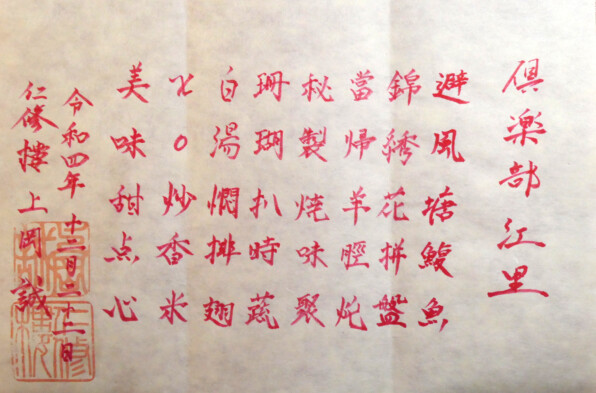 倶楽部江里
避風塘鰒魚
錦綉花拼盤
當帰羊脛炖
秘製焼味聚
珊瑚扒時蔬
白湯燜排翅
XO炒香米
美味甜点心
令和四年十二月
仁修樓上岡誠